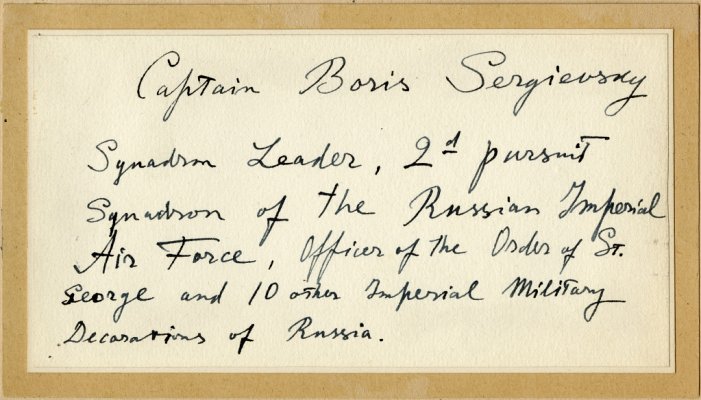 Captain Boris Sergievsky
Squadron Leader, 2d pursuit
Squadron of the Russian Imperial
Air Force, Officer of the Order of St.
George and 10 other Imperial Military
Decorations of Russia.